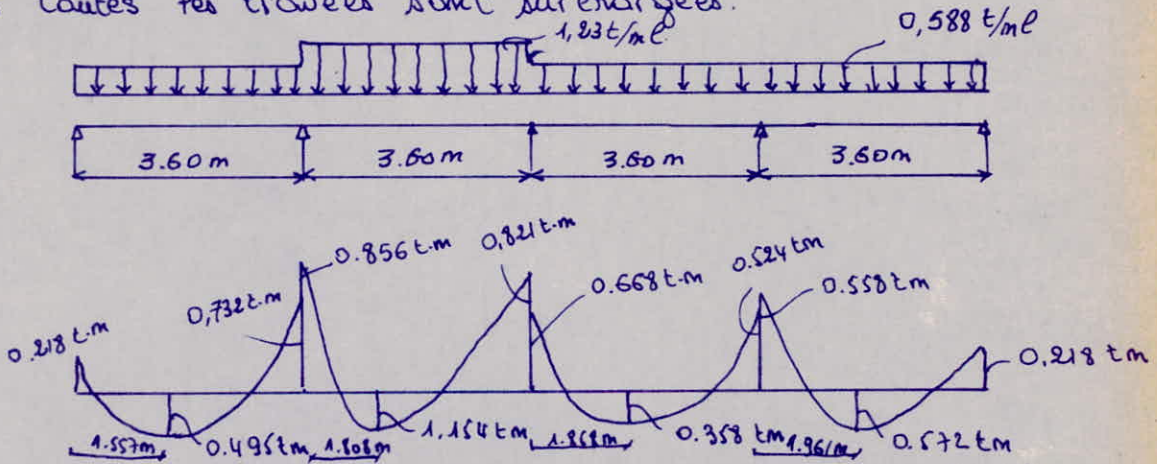 toutes les travées sont surchargées.
1,23 t/ml
0,588 t/ml
3.60 m
3.60 m
3.60 m
3.60 m
0.218 t.m
0,732 t.m
0.856 t.m
0,821 t.m
0.668 t.m
0.524 tm
0.558 tm
0.218 tm
1.557m
0.495 tm
1.808m
1.154 tm
1.868m
0.358 tm
1.961m
0.572 tm